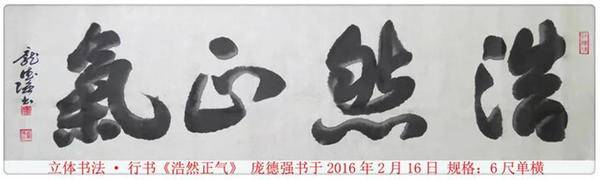 浩然正氣
立体书法 • 行书《浩然正气》 庞德强书于2016年2月16日 规格：6尺单横